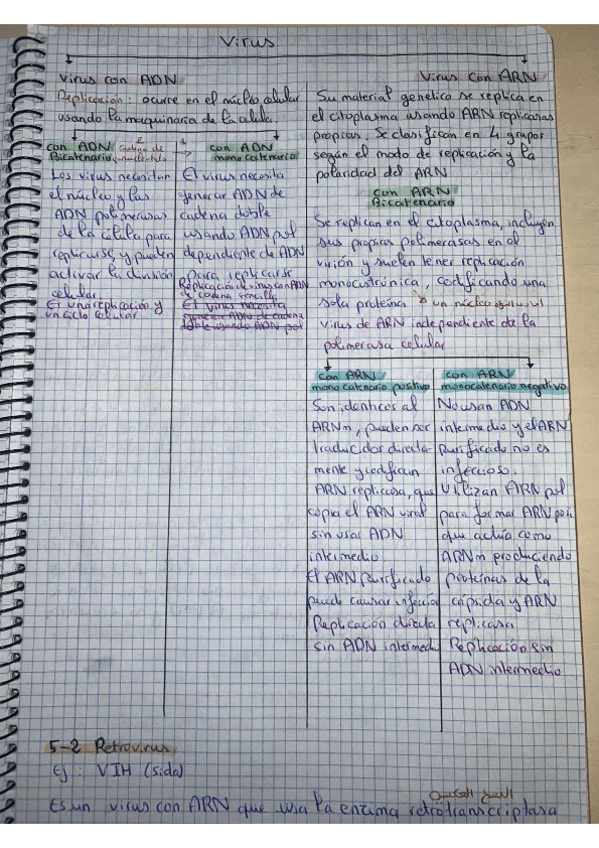 Virus
Virus con ADN
Replicación: ocurre en el núcleo celular
usando la maquinaria de la célula.
con ADN
Bicatenario
Los virus necesitan
el núcleo y las
ADN polimerasas
de la célula para
replicarse, y pueden
activar la división
celular.
replicación y
un ciclo celular
con ADN
monocatenario
El virus necesita
generar ADN de
cadena doble
usando ADN pol
dependiente de ADN
para replicarse
Replicación de virus con ADN
de cadena simple
El virus necesita
generar ADN de cadena
doble usando ADN pol
Virus Con ARN
Su material genetico se replica en
el citoplasma usando ARN replicasas
propias. Se clasifican en 4 grupos
según el modo de replicación y la
polaridad del ARN
con ARN
Bicatenario
Se replican en el citoplasma, incluyen
sus propias polimerasas en el
virión y suelen tener replicación
monocistrónica, codificando una
sola proteína un núcleo
virus de ARN independiente de la
polimerasa celular
con ARN
monocatenario positivo
Son identicos al
ARNm, pueden ser
traducidos directa-
mente y codifican
ARN replicasa, que
copia el ARN viral
sin usar ADN
intermedio
El ARN purificado
puede causar infección
Replicación directa
sin ADN intermedio
con ARN
monocatenario negativo
No usan ADN
intermedio y el ARN
purificado no es
infeccioso.
Utilizan ARN pol
para formar ARN posi
que actúa como
ARNm produciendo
proteínas de la
cápsida y ARN
replicasa
Replicación sin
ADN intermedio
5-2 Retrovirus
Ej: VIH (sida)
النسخ العكسي
Es un virus con ARN que usa la enzima retrotranscriptasa